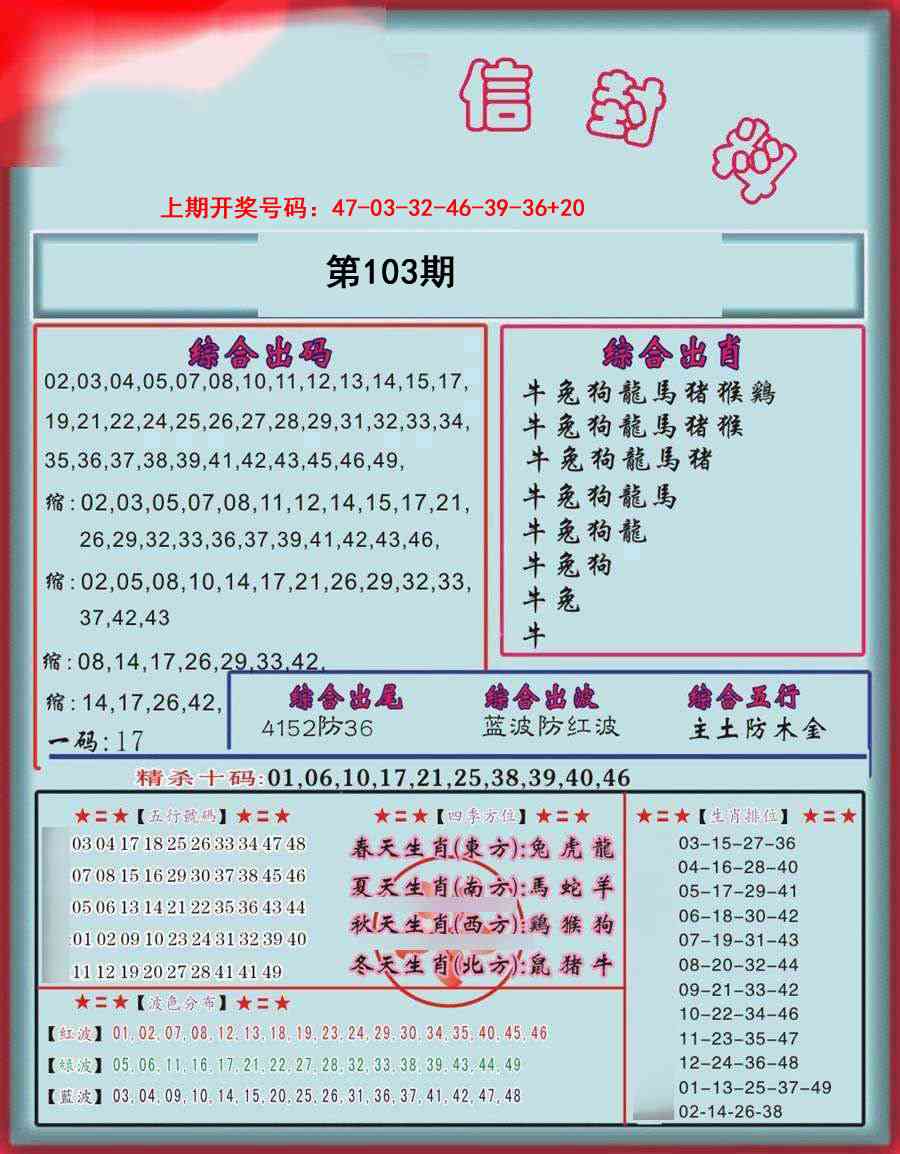 信封料
上期开奖号码：47-03-32-46-39-36+20
第103期
综合出码
02,03,04,05,07,08,10,11,12,13,14,15,17,
19,21,22,24,25,26,27,28,29,31,32,33,34,
35,36,37,38,39,41,42,43,45,46,49,
缩:02,03,05,07,08,11,12,14,15,17,21,
26,29,32,33,36,37,39,41,42,43,46,
缩:02,05,08,10,14,17,21,26,29,32,33,
37,42,43
缩:08,14,17,26,29,33,42,
缩:14,17,26,42,
一码:17
综合出肖
牛兔狗龍馬猪猴鷄
牛兔狗龍馬猪猴
牛兔狗龍馬猪
牛兔狗龍馬
牛兔狗龍
牛兔狗
牛兔
牛
综合出尾
4152防36
综合出波
蓝波防红波
综合五行
主土防木金
精杀十码:01,06,10,17,21,25,38,39,40,46
★=★【五行號碼】★=★
03 04 17 18 25 26 33 34 47 48
07 08 15 16 29 30 37 38 45 46
05 06 13 14 21 22 35 36 43 44
01 02 09 10 23 24 31 32 39 40
11 12 19 20 27 28 41 41 49
★=★【四季方位】★=★
春天生肖(東方):兔虎龍
夏天生肖(南方):馬蛇羊
秋天生肖(西方):鷄猴狗
冬天生肖(北方):鼠猪牛
★=★【波色分布】★=★
【紅波】01,02,07,08,12,13,18,19,23,24,29,30,34,35,40,45,46
【緑波】05,06,11,16,17,21,22,27,28,32,33,38,39,43,44,49
【藍波】03,04,09,10,14,15,20,25,26,31,36,37,41,42,47,48
★=★【生肖排位】★=★
03-15-27-36
04-16-28-40
05-17-29-41
06-18-30-42
07-19-31-43
08-20-32-44
09-21-33-42
10-22-34-46
11-23-35-47
12-24-36-48
01-13-25-37-49
02-14-26-38